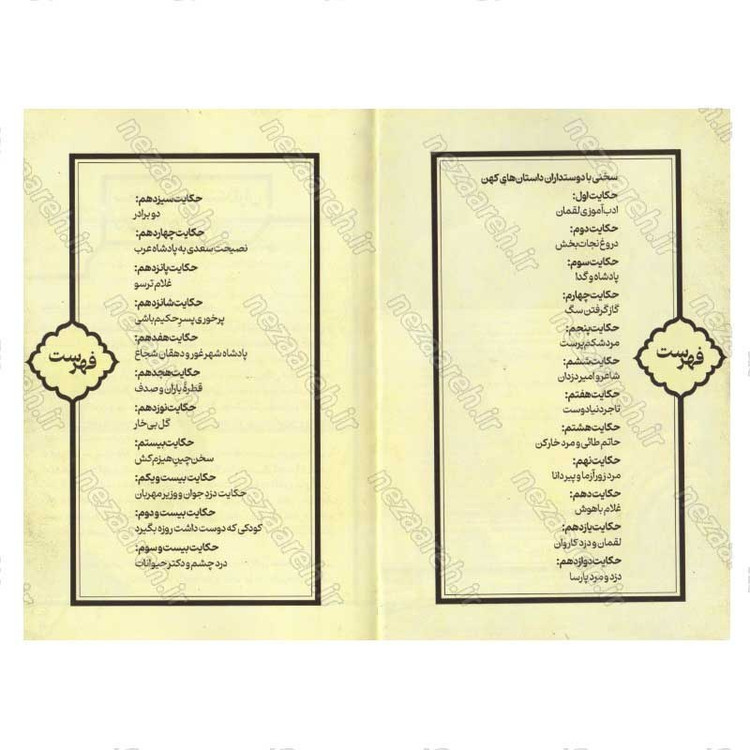 فهرست
سخنی با دوستداران داستان‌های کهن
حکایت اول:
ادب‌آموزی لقمان
حکایت دوم:
دروغ نجات‌بخش
حکایت سوم:
پادشاه و گدا
حکایت چهارم:
گاز گرفتن سگ
حکایت پنجم:
مرد شکم‌پرست
حکایت ششم:
شاعر و امیر دزدان
حکایت هفتم:
تاجر دنیادوست
حکایت هشتم:
حاتم طائی و مرد خارکن
حکایت نهم:
مرد زورآزما و پیر دانا
حکایت دهم:
غلام باهوش
حکایت یازدهم:
لقمان و دزد کاروان
حکایت دوازدهم:
دزد و مرد پارسا
فهرست
حکایت سیزدهم:
دو برادر
حکایت چهاردهم:
نصیحت سعدی به پادشاه عرب
حکایت پانزدهم:
غلام ترسو
حکایت شانزدهم:
پرخوری پسر حکیم‌باشی
حکایت هفدهم:
پادشاه شهر غور و دهقان شجاع
حکایت هجدهم:
قطرهٔ باران و صدف
حکایت نوزدهم:
گل بی‌خار
حکایت بیستم:
سخن‌چینِ هیزم‌کش
حکایت بیست و یکم:
حکایت دزد جوان و وزیر مهربان
حکایت بیست و دوم:
کودکی که دوست داشت روزه بگیرد
حکایت بیست و سوم:
درد چشم و دکتر حیوانات
nezaareh.ir